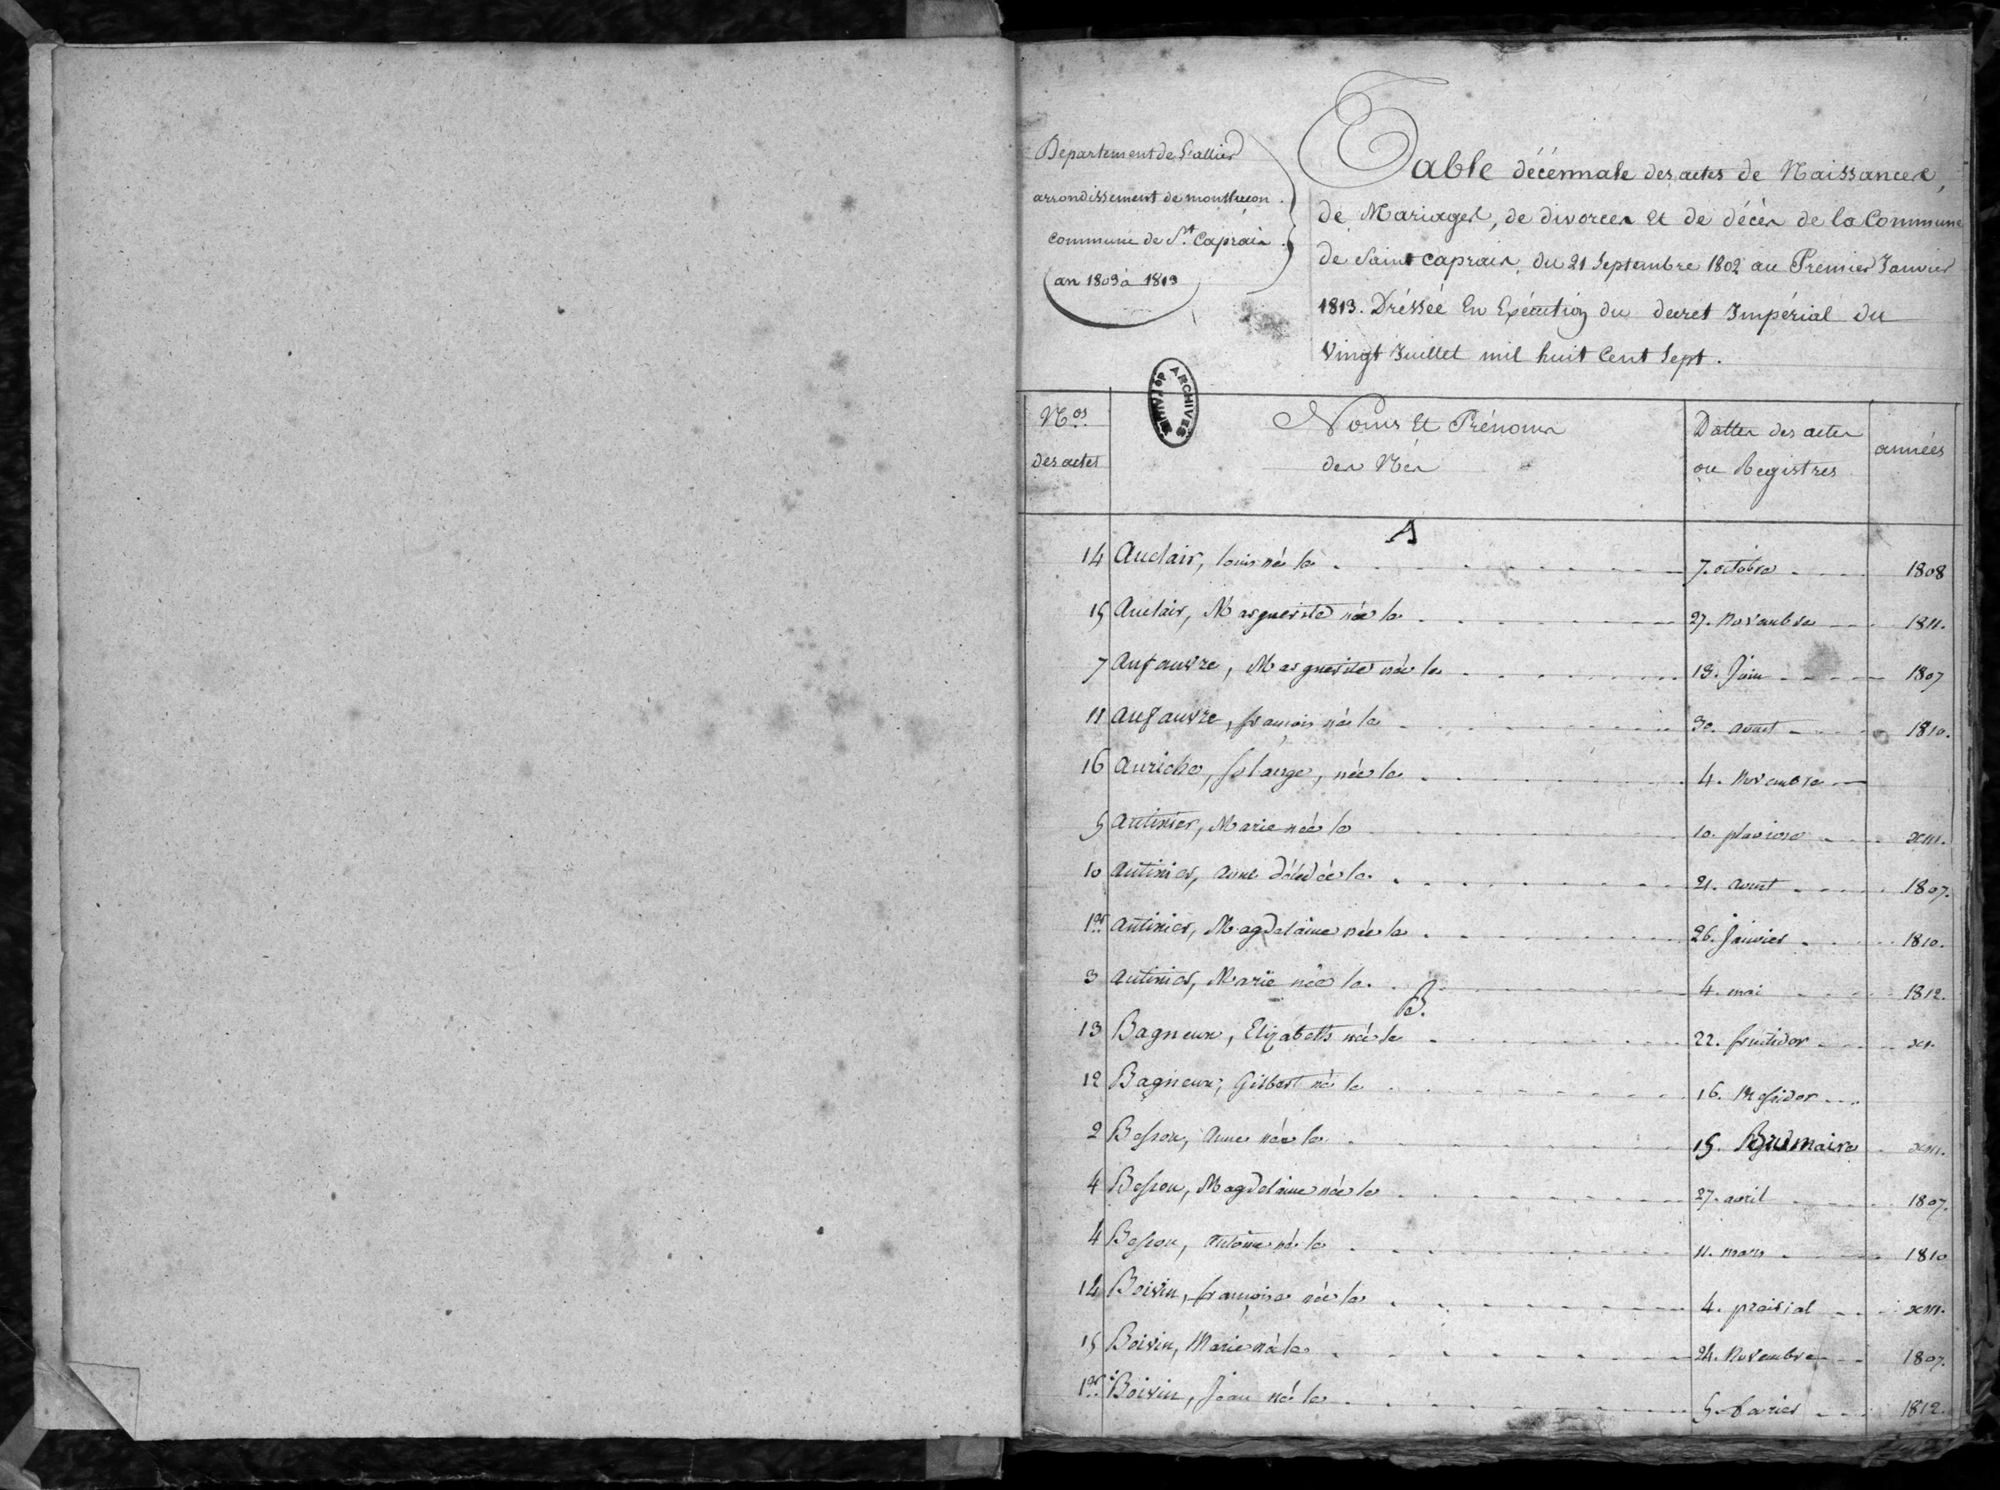 Département de l'allier
arrondissement de montlucon
commune de St. Caprais
an 1803 à 1813
Table décénnale des actes de Naissances,
de Mariages, de divorces et de décès de la Commune
de Saint caprais, du 21 Septembre 1802 au Premier Janvier
1813. Dréssée En Exécution du decret Impérial du
Vingt Juillet mil huit Cent Sept.
ARCHIVES
Nos. des actes
Noms Et Prénoms des Nés
Dattes des actes ou Registres
années
A
14 Auclair, louis né le 7. octobre 1808
15 Auclair, Marguerite née le 27. Novembre 1811.
7 Aufauvre, Marguerite née le 13. Juin 1807
11 Aufauvre, francois né le 30. Aoust 1810.
16 Auriche, solange, née le 4. Novembre
5 Autinier, Marie née le 10. pluviose
10 Autinier, Anne née le 21. Aoust 1807.
1er. Autinier, Magdelaine née le 26. Janvier 1810.
3 Autinier, Marie née le 4. mai 1812.
B.
13 Bagneux, Elizabeth née le 22. fructidor xi.
12 Bagneux, Gilbert né le 16. Messidor
2 Besson, Anne née le 15. Brumaire
4 Besson, Magdelaine née le 27. avril 1807.
4 Besson, Antoine né le 11. mars 1810
14 Boivin, françoise née le 4. prairial
15 Boivin, Marie née le 24. Novembre 1807.
1er. Boivin, Jean né le 5 1812.